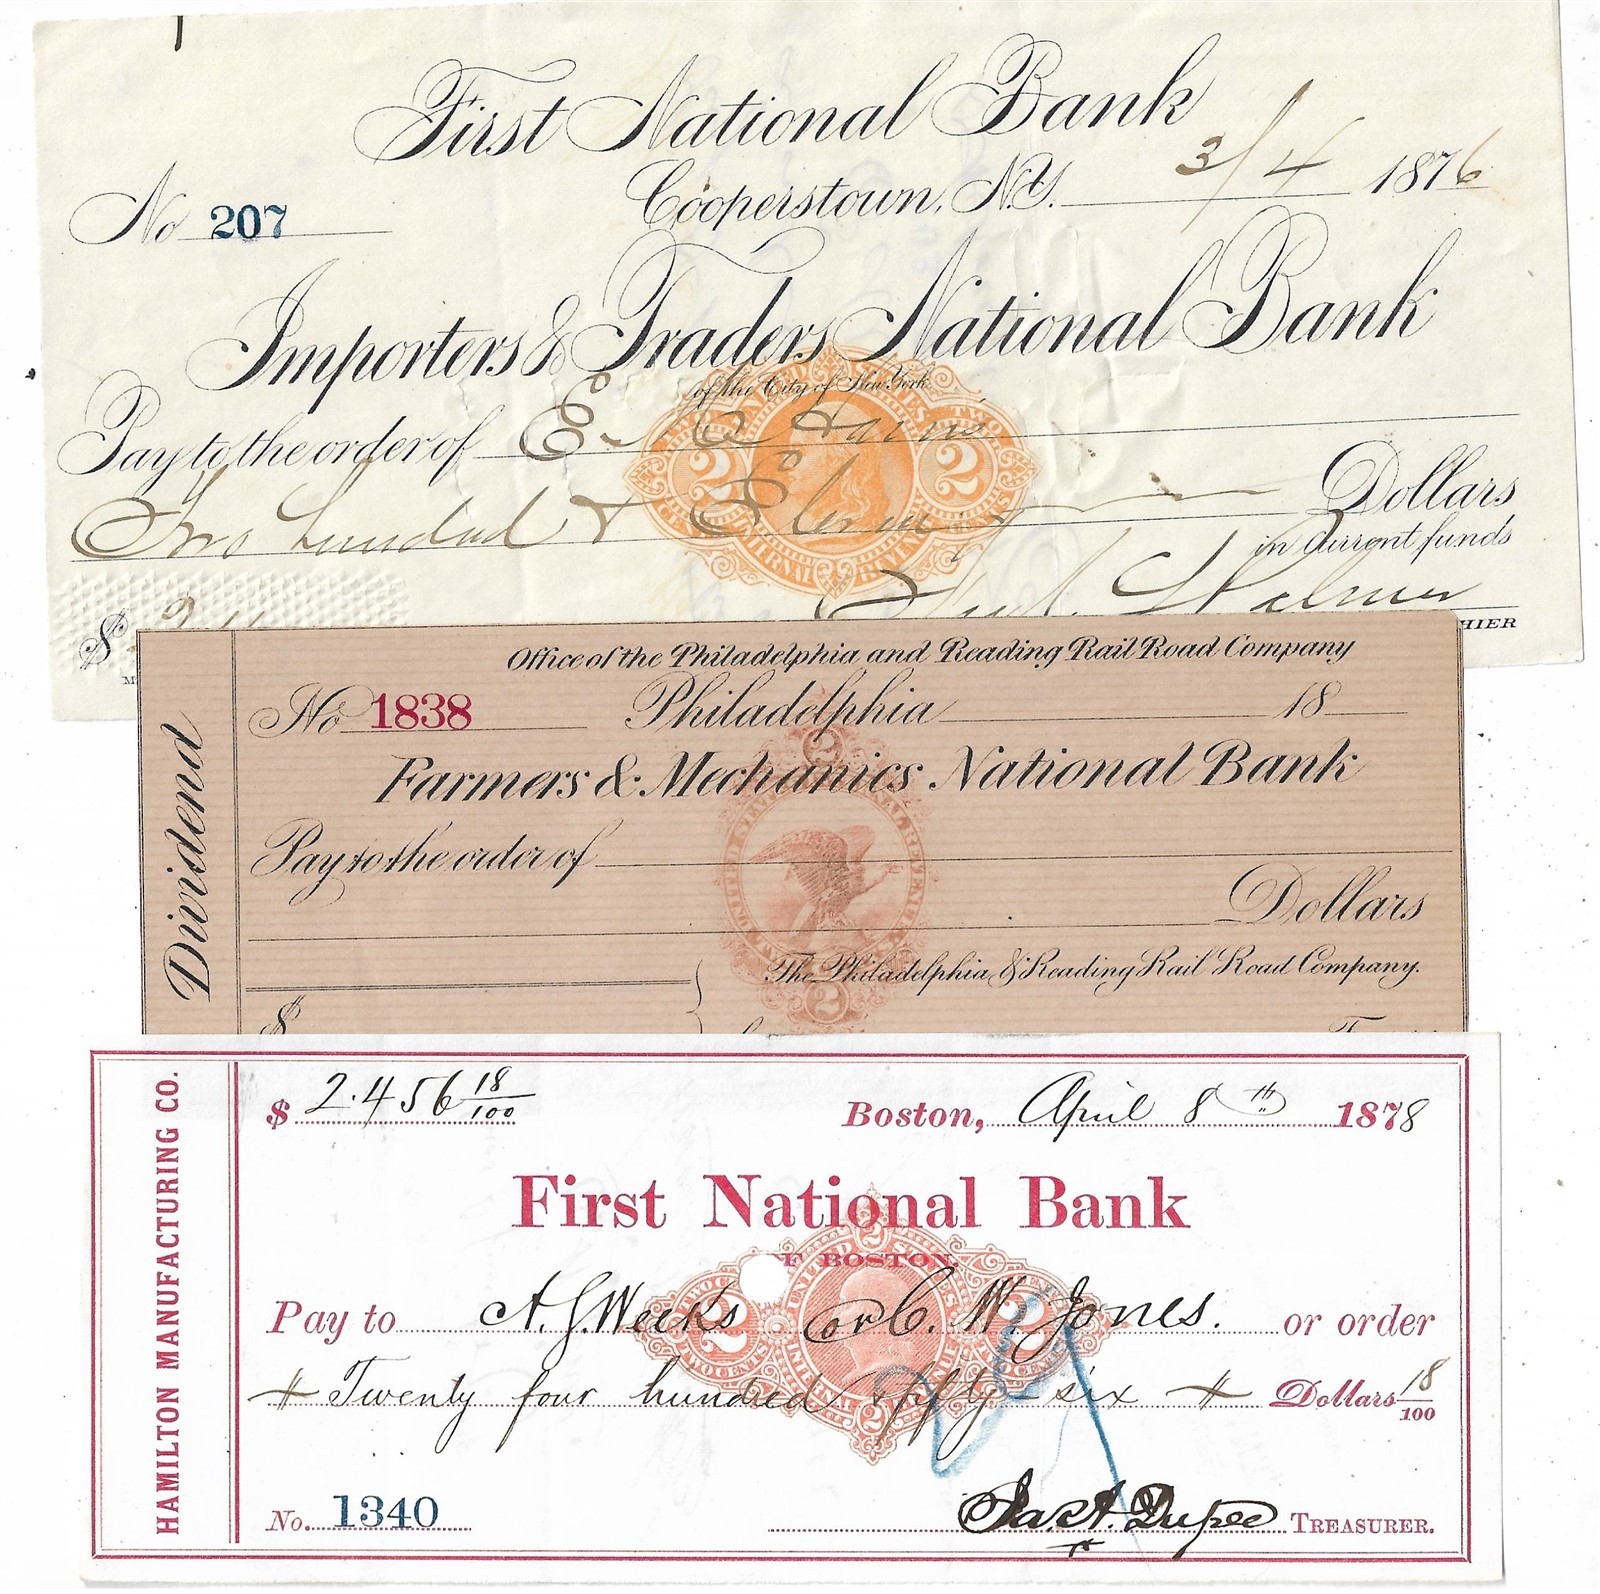 First National Bank
Cooperstown, N.Y. 3/4 1876
No 207
Importers & Traders National Bank
of the City of New York
Pay to the order of
Two hundred & Eleven Dollars
in Current funds
$ 211
Office of the Philadelphia and Reading Rail Road Company
No 1838 Philadelphia 18
Dividend
Farmers & Mechanics National Bank
Pay to the order of
Dollars
The Philadelphia & Reading Rail Road Company.
$
HAMILTON MANUFACTURING CO.
$ 2.456 18/100 Boston, April 8th 1878
First National Bank
OF BOSTON.
Pay to A. G. Weeks or C. W. Jones. or order
Twenty four hundred & fifty six Dollars 18/100
No. 1340 Jas. A. Dupee TREASURER.